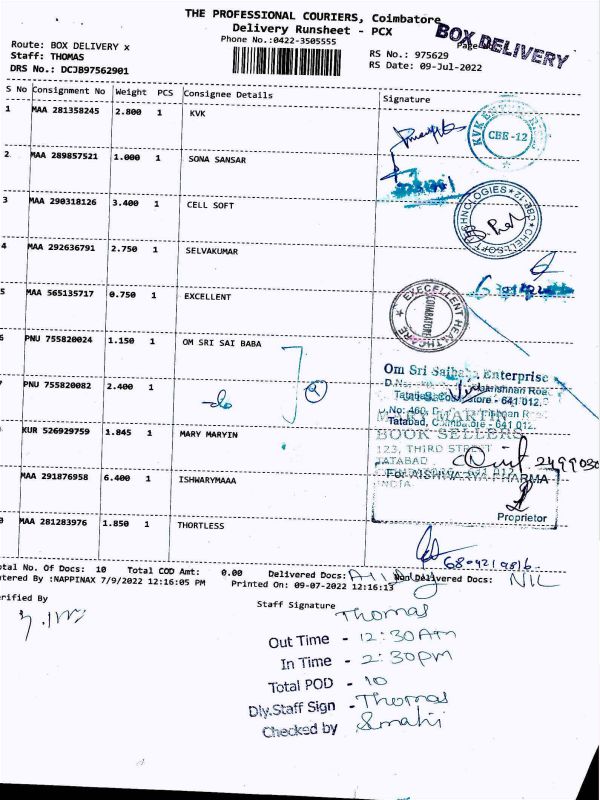 THE PROFESSIONAL COURIERS, Coimbatore
Delivery Runsheet - PCX
Phone No.:0422-3505555
BOX DELIVERY
Route: BOX DELIVERY x
Staff: THOMAS
DRS No.: DCJB97562901
RS No.: 975629
RS Date: 09-Jul-2022
S No Consignment No Weight PCS Consignee Details Signature
1 MAA 281358245 2.800 1 KVK
CBE-12
2 MAA 289857521 1.000 1 SONA SANSAR
3 MAA 290318126 3.400 1 CELL SOFT
4 MAA 292636791 2.750 1 SELVAKUMAR
5 MAA 565135717 0.750 1 EXCELLENT
EXECELLENT HEALTHCARE
COIMBATORE
6 PNU 755820024 1.150 1 OM SRI SAI BABA
Om Sri Saibaba Enterprise
7 PNU 755820082 2.400 1
Tatabad, Coimbatore - 641 012.
KUR 526929759 1.845 1 MARY MARYIN
MARY MARTIN
BOOK SELLERS
123, THIRD STREET
TATABAD
INDIA
MAA 291876958 6.400 1 ISHWARYMAAA
For AISHWARYA PHARMA
Proprietor
MAA 281283976 1.850 1 THORTLESS
Total No. Of Docs: 10 Total COD Amt: 0.00 Delivered Docs: Non Delivered Docs: NIL
Entered By :NAPPINAX 7/9/2022 12:16:05 PM Printed On: 09-07-2022 12:16:13
Verified By
Staff Signature
Thomas
Out Time - 12:30 Am
In Time - 2:30pm
Total POD - 10
Dly.Staff Sign - Thomas
Checked by